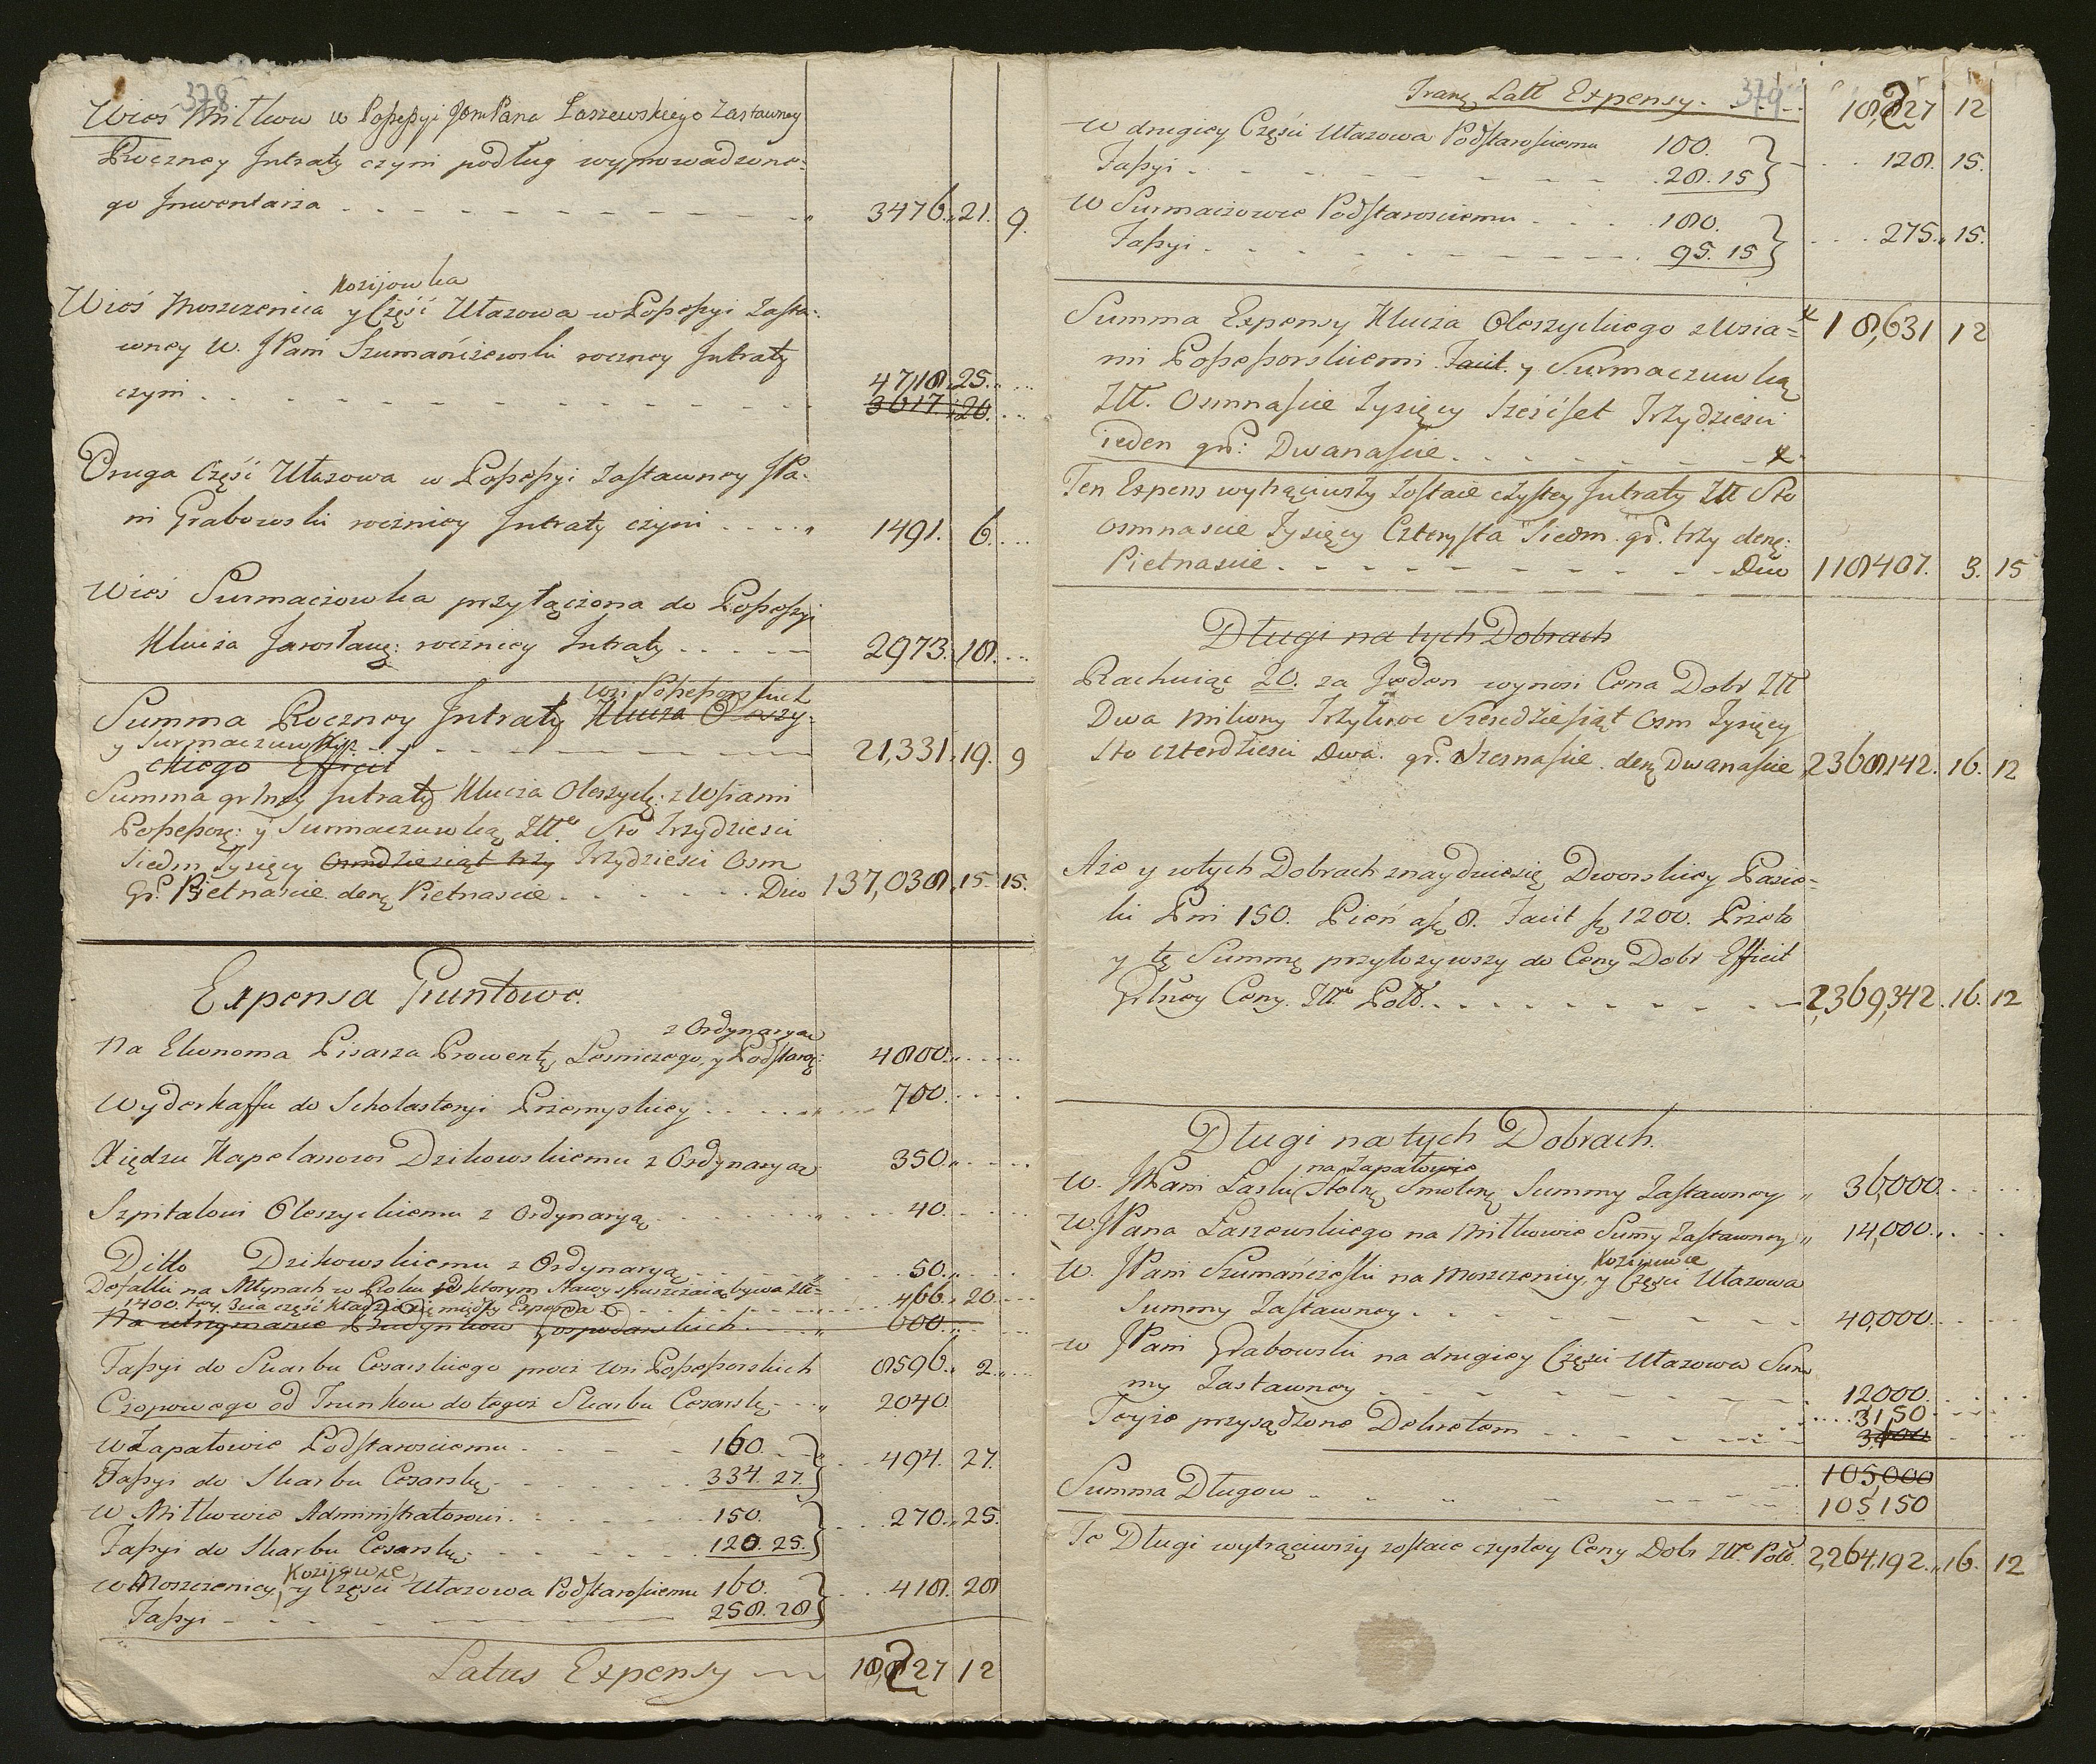 378
Wieś Mitkow w Possessyi JemPana Łaszewskiego Zastawney
Roczney Intraty czyni podług wyprowadzone-
go Inwentarza 3476. 21. 9.
Kozijowka
Wieś Moszczenica y Część Ułazowa w Possessyi Zasta-
wney W. JPani Szumańczewski roczney Intraty
4718. 25.
czyni 3617. 20.
Druga Część Ułazowa w Possessyi Zastawney JPa-
ni Grabowski roczniey Intraty czyni 1491. 6.
Wieś Surmaczowka przyłączona do Possessyi
Klucza Jarosławs: roczniey Intraty 2973. 18.
wsi Possessorskich
Summa Roczney Intraty Klucza Oleszy-
y Surmaczuwkiy 21,331. 19. 9
ckiego Efficit
Summa grlney Intraty Klucza Oleszyck: z Wsiami
Possesors: y Surmaczuwką Złł Sto Trzydzieści
Siedm Tysięcy Osmdziesiąt trzy Trzydzieści Osm
Gr. Pietnaście denr Pietnaście Dico 137,038. 15. 15.
Expensa Gruntowe.
z Ordynaryą
Na Ekonoma Pisarza Prowent, Lesniczego, y Podstaro: 4800.
Wyderkaffu do Scholasteryi Przemyskiey 700.
Xiędzu Kapelanowi Dzikowskiemu z Ordynaryą 350.
Szpitalowi Oleszyckiemu z Ordynaryą 40.
Ditto Dzikowskiemu z Ordynaryą 50.
Defalki na Młynach w Roku w ktorym Stawy spuszczaią bywa Złł 466. 20.
1400. tey 3cia część kładzie się między Expensa
Na utrzymanie Budynkow Gospodarskich 600.
Fassyi do Skarbu Cesarskiego procz wsi Possessorskich 8596. 2.
Czopowego od Trunkow do tegoż Skarbu Cesarsk. 2040
W Zapałowie Podstarościemu 160. 494. 27.
Fassyi do Skarbu Cesarsk. 334. 27.
W Mitkowie Administratorowi 150. 270. 25.
Fassyi do Skarbu Cesarsk. 120. 25.
Kozijowie
w Moszczenicy, y Części Ułazowa Podstarościemu 160. 418. 28
Fassyi 258. 28
Latus Expensy 18,227 12
379
Trans Latt Expensy. 18,227 12
W drugiey Części Ułazowa Podstarościemu 100. 128. 15.
Fassyi 28. 15
W Surmaczowie Podstarościemu 180. 275. 15.
Fassyi 95. 15
Summa Expensy Klucza Oleszyckiego z Wsia- 18,631 12
mi Possessorskiemi Facit. y Surmaczuwką
Złł. Osmnaście Tysięcy Sześćset Trzydzieści
ieden gr: Dwanaście
Ten Expens wytrąciwszy zostaie czystey Intraty Złł Sto
Osmnaście Tysięcy Czterysta Siedm. gr. trzy denr:
Pietnaście Dico 118407. 3. 15
Długi na tych Dobrach
Rachuiąc 20. za Jeden wynosi Cena Dobr Złł
Dwa Miliony Trzykroc Sześcdziesiąt Osm Tysięcy
Sto czterdzieści Dwa. gr. Szesnaście. denr Dwanaście 2368142. 16. 12
Aże y w tych Dobrach znayduie się Dworskiey Pasie-
ki Pni 150. Pień a 8. Facit 1200. Przeto
y tę Summę przyłożywszy do Ceny Dobr Efficit
Grlney Ceny. Złł Pols. 2,369,342. 16. 12
Długi na tych Dobrach.
na Zapałowie
W. JPani Laski Stolns Smolens Summy Zastawney 36,000.
W. JPana Łaszewskiego na Mitkowie Sumy Zastawney 14,000.
Kozijowie
W. JPani Szumańczeski na Moszczenicy, y Części Ułazowa
Summy Zastawney 40,000.
W JPani Grabowski na drugiey Części Ułazowa Sum
my Zastawney 12000.
Teyże przysądzone Dekretem 3150
105,000
Summa Długow 105150
Te Długi wytrąciwszy zostaie czystey Ceny Dobr Złł Pols. 2,264,192. 16. 12